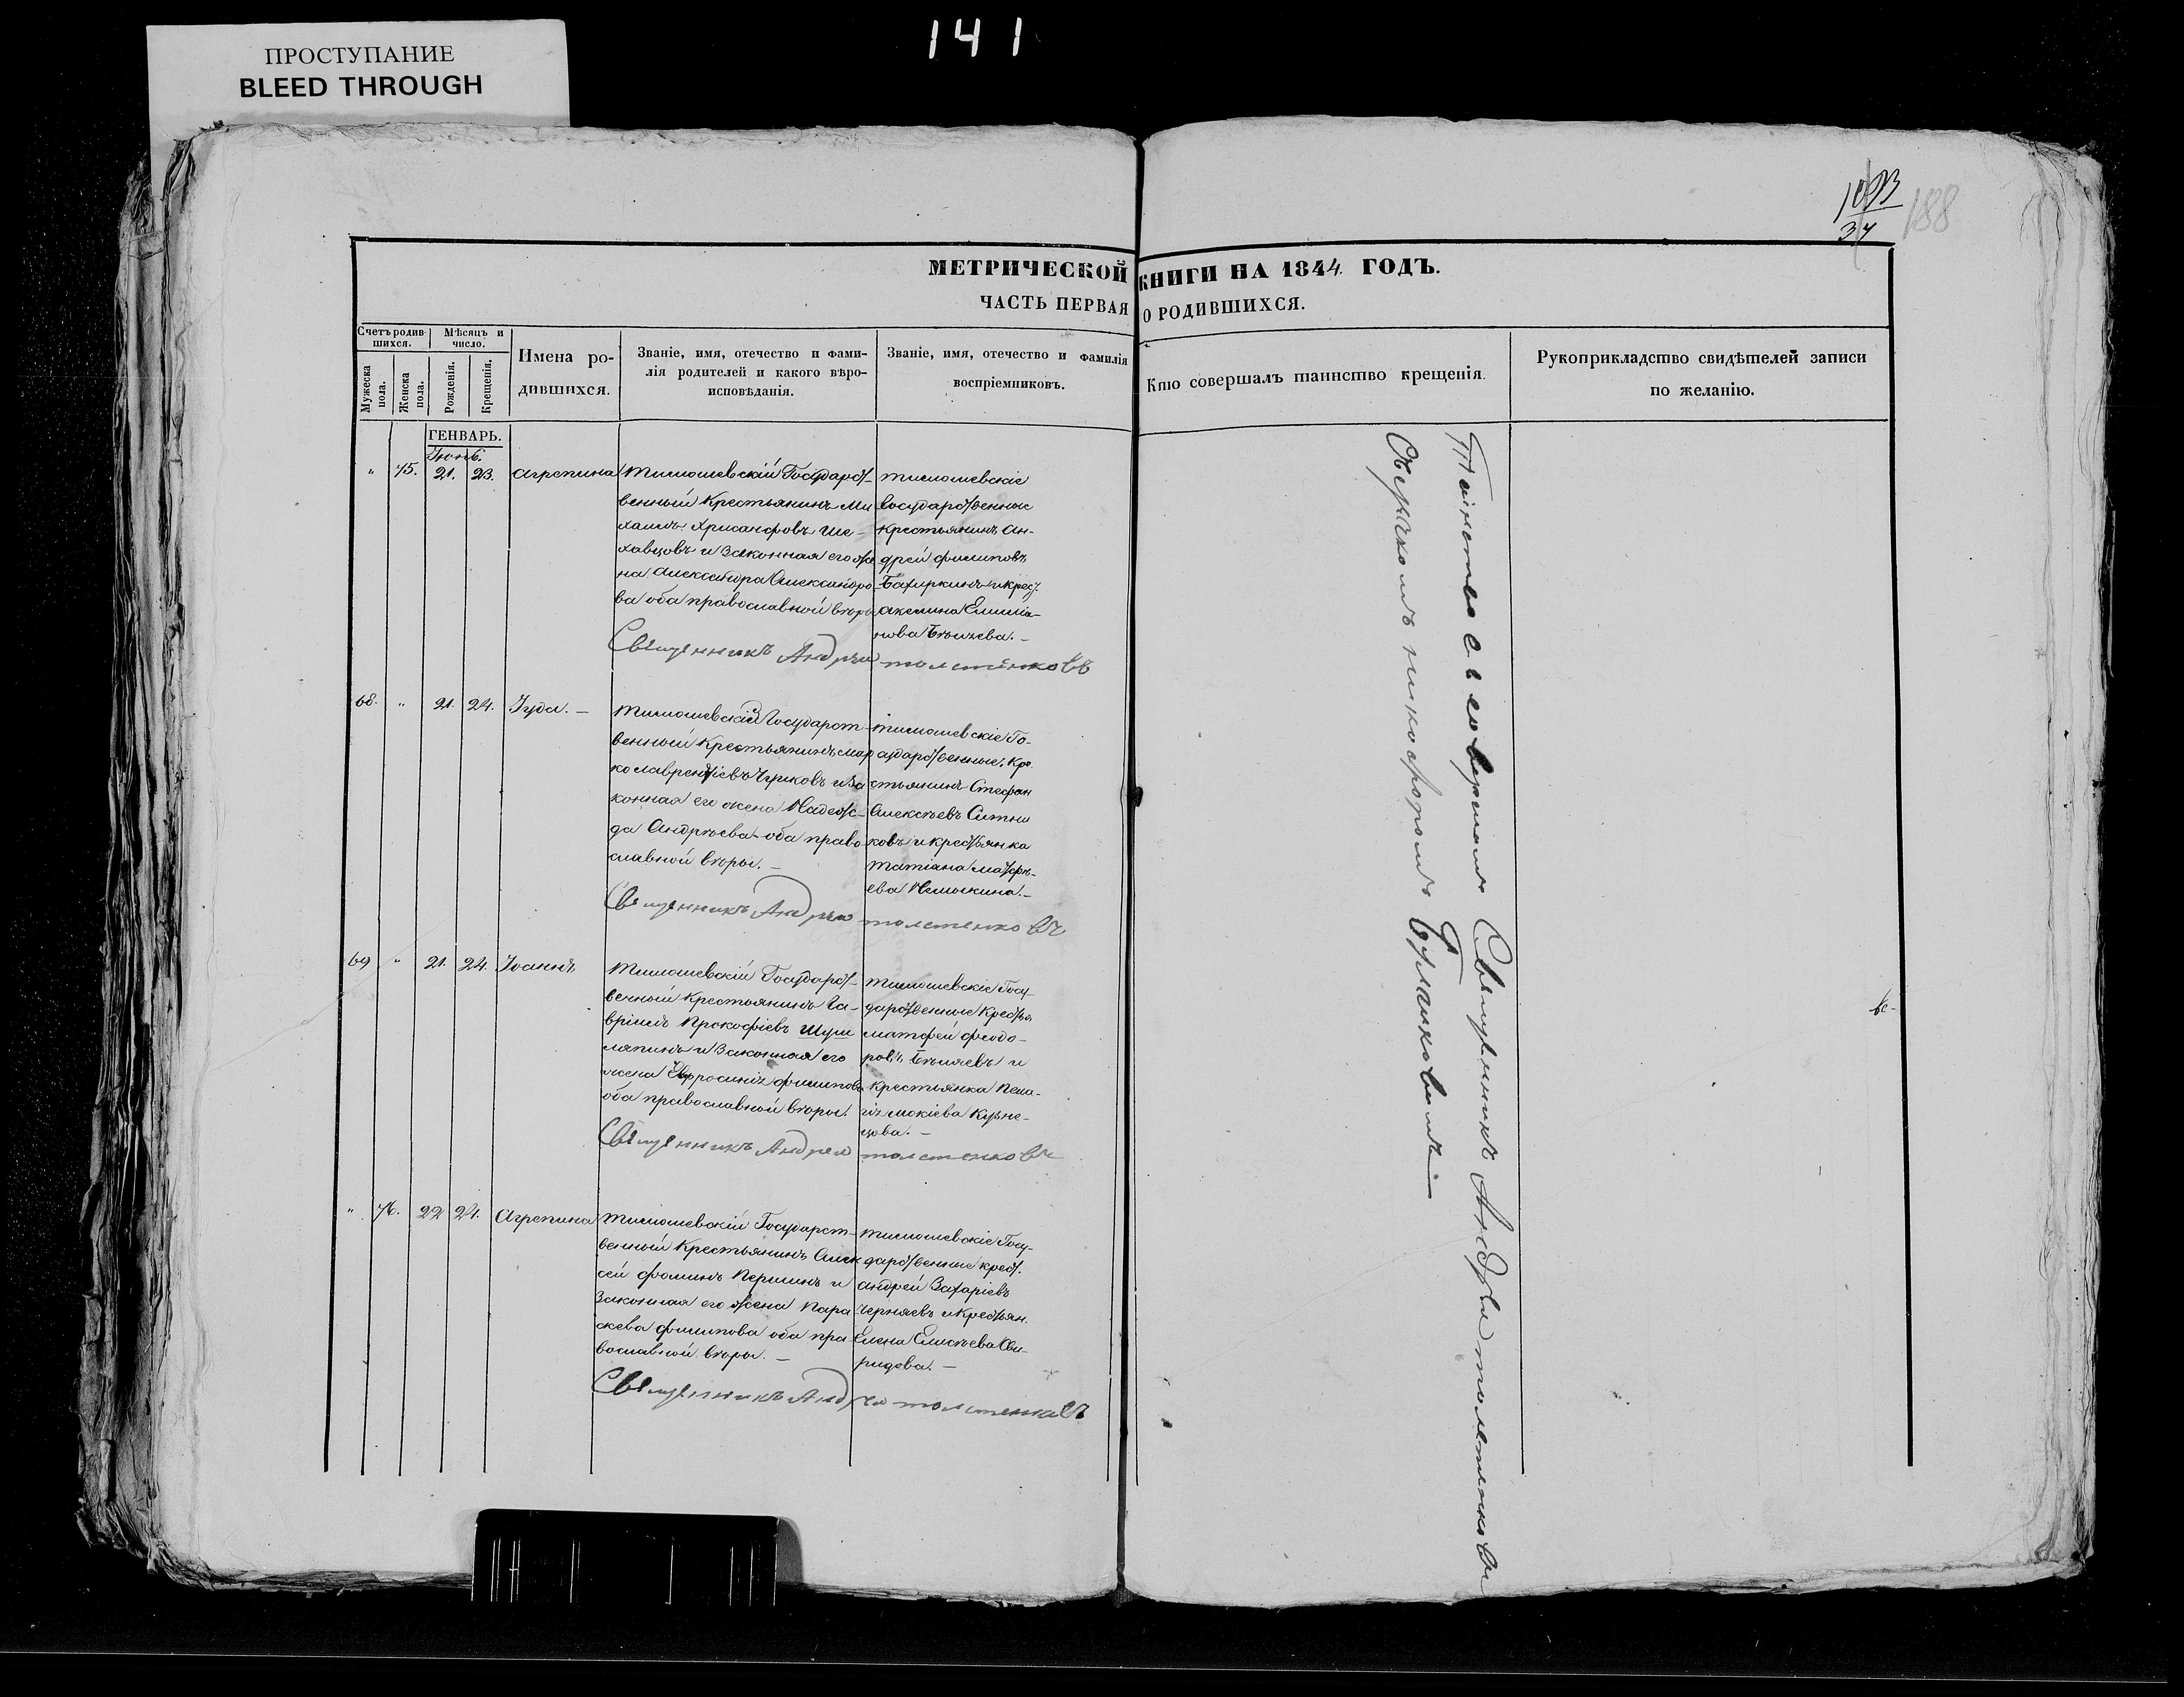 141
ПРОСТУПАНИЕ
BLEED THROUGH
188
34
МЕТРИЧЕСКОЙ КНИГИ НА 1844 ГОДЪ.
ЧАСТЬ ПЕРВАЯ О РОДИВШИХСЯ.
Счетъ родив-
шихся.
Мужеска
пола.
Женска
пола.
Мѣсяцъ и
число.
Рожденія.
Крещенія.
Имена ро-
дившихся.
Званіе, имя, отечество и фами-
лія родителей и какого вѣро-
исповѣданія.
Званіе, имя, отечество и фамилія
воспріемниковъ.
Кто совершалъ таинство крещенія.
Рукоприкладство свидѣтелей записи
по желанію.
ГЕНВАРЬ.
Іюнь.
" 75. 21. 23. Агрепина
Тимошевскій Государст-
венный Крестьянинъ Ми
хаилъ Хрисанфовъ Ше-
ховцовъ и Законная его же
на Александра Александро
ва оба православной вѣры
Тимошевскіе
Государственные
Крестьянинъ Ан-
дрей Филиповъ
и крест.
Акелина Емилiа-
нова
Священникъ Андрей Толстенковъ
68. " 21. 24. Іуда. —
Тимошевскій Государст-
венный Крестьянинъ Мар
ко Лаврентіевъ Чурковъ и За
конная его жена Надеж-
да Андрѣева оба право
славной вѣры. —
Тимошевскіе Го-
сударственные, Кре
стьянинъ Стефан
Алексѣевъ Ситни
ковъ и крестьянка
Татіана Матфѣ-
ева
Священникъ Андрей Толстенковъ
69 " 21. 24. Іоаннъ
Тимошевскій Государст-
венный Крестьянинъ Га-
вріилъ Прокофіевъ Шум
ляпинъ и Законная его
жена Евфросинія Филипова
оба православной вѣры.
Тимошевскіе Госу-
дарственные Крестья
Матфей Феодо-
ровъ Бѣляевъ и
Крестьянка Пела-
гія Мокіева Кузне-
цова. —
Священникъ Андрей Толстенковъ
" 76. 22 24. Агрепина
Тимошевскій Государст-
венный Крестьянинъ Алек
сей Фоминъ Першинъ и
Законная его жена Пара
скева Филипова оба пра
вославной вѣры. —
Тимошевскіе Госу-
дарственные крест.
Андрей Захаріевъ
Черняевъ и Крестьян.
Елена Елисѣева Сви-
ридова. —
Священникъ Андрей Толстенковъ
Таинство совершалъ Священникъ Андрей Толстенковъ
Никифоромъ Бурлаковымъ —